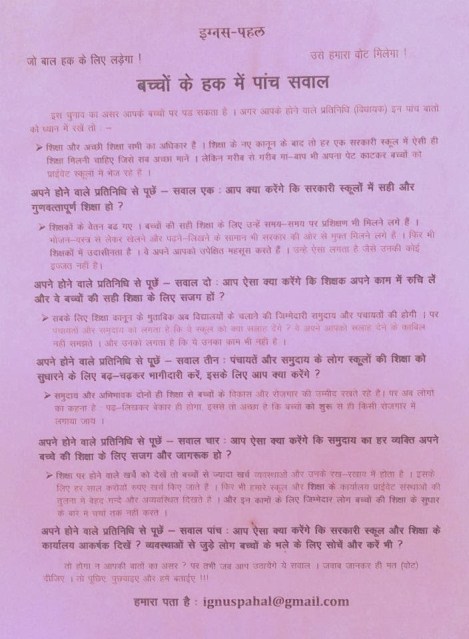 इग्नस-पहल
जो बाल हक के लिए लड़ेगा ! उसे हमारा वोट मिलेगा !
बच्चों के हक में पांच सवाल
इस चुनाव का असर आपके बच्चों पर पड़ सकता है । अगर आपके होने वाले प्रतिनिधि (विधायक) इन पांच बातों
को ध्यान में रखें तो : –
➢ शिक्षा और अच्छी शिक्षा सभी का अधिकार है । शिक्षा के नए कानून के बाद तो हर एक सरकारी स्कूल में ऐसी ही
शिक्षा मिलनी चाहिए जिसे सब अच्छा माने । लेकिन गरीब से गरीब मा-बाप भी अपना पेट काटकर बच्चों को
प्राईवेट स्कूलों में भेज रहे है ।
अपने होने वाले प्रतिनिधि से पूछें – सवाल एक : आप क्या करेंगे कि सरकारी स्कूलों में सही और
गुणवत्तापूर्ण शिक्षा हो ?
➢ शिक्षकों के वेतन बढ़ गए । बच्चों की सही शिक्षा के लिए उन्हें समय-समय पर प्रशिक्षण भी मिलने लगे है ।
भोजन-वस्त्र से लेकर खेलने और पढ़ने-लिखने के सामान भी सरकार की ओर से मुफ्त मिलने लगे है । फिर भी
शिक्षकों में उदासीनता है । वे अपने आपको उपेक्षित महसूस करते हैं । उन्हें ऐसा लगता है जैसे उनकी कोई
इज्जत नहीं है।
अपने होने वाले प्रतिनिधि से पूछें – सवाल दो : आप ऐसा क्या करेंगे कि शिक्षक अपने काम में रुचि लें
और ये बच्चों की सही शिक्षा के लिए सजग हों ?
➢ सबके लिए शिक्षा कानून के मुताबिक अब विद्यालयों के चलाने की जिम्मेदारी समुदाय और पंचायतों की होगी । पर
पंचायतों और समुदाय को लगता है कि वे स्कूल को क्या सलाह देंगे ? वे अपने आपको सलाह देने के काबिल
नहीं समझते । और उनको लगता है कि ये उनका काम भी नहीं है ।
अपने होने वाले प्रतिनिधि से पूछें – सवाल तीन : पंचायतें और समुदाय के लोग स्कूलों की शिक्षा को
सुधारने के लिए बढ़-चढ़कर भागीदारी करें, इसके लिए आप क्या करेंगे ?
➢ समुदाय और अभिभावक दोनों ही शिक्षा से बच्चों के विकास और रोजगार की उम्मीद रखते रहे है। पर अब लोगों
का कहना है : पढ़-लिखकर बेकार ही होगा इससे तो अच्छा है कि बच्चों को शुरू से ही किसी रोजगार में
लगाया जाय ।
अपने होने वाले प्रतिनिधि से पूछें – सवाल चार : आप ऐसा क्या करेंगे कि समुदाय का हर व्यक्ति अपने
बच्चे की शिक्षा के लिए सजग और जागरूक हो ?
➢ शिक्षा पर होने वाले खर्च को देखें तो बच्चों से ज्यादा खर्च व्यवस्थाओं और उनके रख-रखाव में होता है । इसके
लिए हर साल करोड़ों रुपए खर्च किए जाते हैं । फिर भी हमारे स्कूल और शिक्षा के कार्यालय प्राईवेट संस्थाओं की
तुलना में बेहद गन्दे और अव्यवस्थित दिखते है । और इन कामों के लिए जिम्मेदार लोग बच्चों की शिक्षा के सुधार
के बारे में चर्चा तक नहीं करते ।
अपने होने वाले प्रतिनिधि से पूछें – सवाल पांच : आप ऐसा क्या करेंगे कि सरकारी स्कूल और शिक्षा के
कार्यालय आकर्षक दिखें ? व्यवस्थाओं से जुड़े लोग बच्चों के भले के लिए सोचें और करें भी ?
तो होगा न आपकी बातों का असर ? पर तभी जब आप उठायेंगे ये सवाल । जवाब जानकर ही मत (वोट)
दीजिए । तो पूछिए, पुछवाइए और हमें बताईए !!!
हमारा पता है : ignuspahal@gmail.com